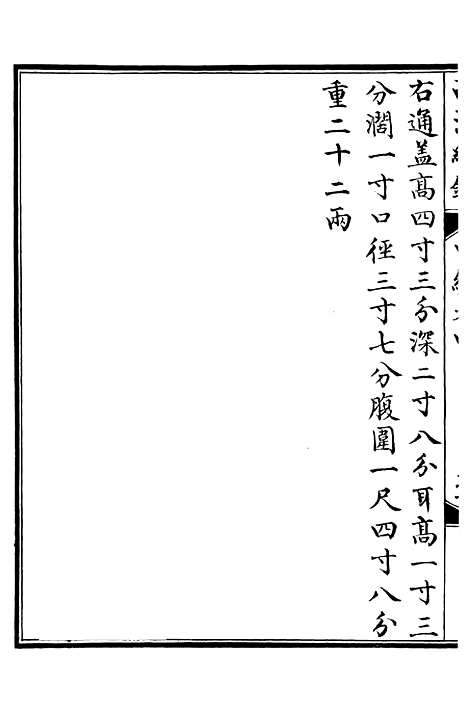 右通盖髙四寸三分深二寸八分耳髙一寸三
分濶一寸口徑三寸七分腹圍一尺四寸八分
重二十二兩